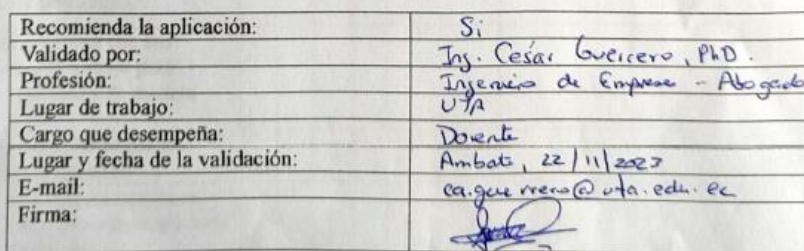 Recomienda la aplicación: Si
Validado por: Ing. Cesar Guerrero, PhD.
Profesión: Ingeniero de Empresas - Abogado
Lugar de trabajo: UTA
Cargo que desempeña: Docente
Lugar y fecha de la validación: Ambato, 22/11/2023
E-mail: ca.guerrero@uta.edu.ec
Firma: